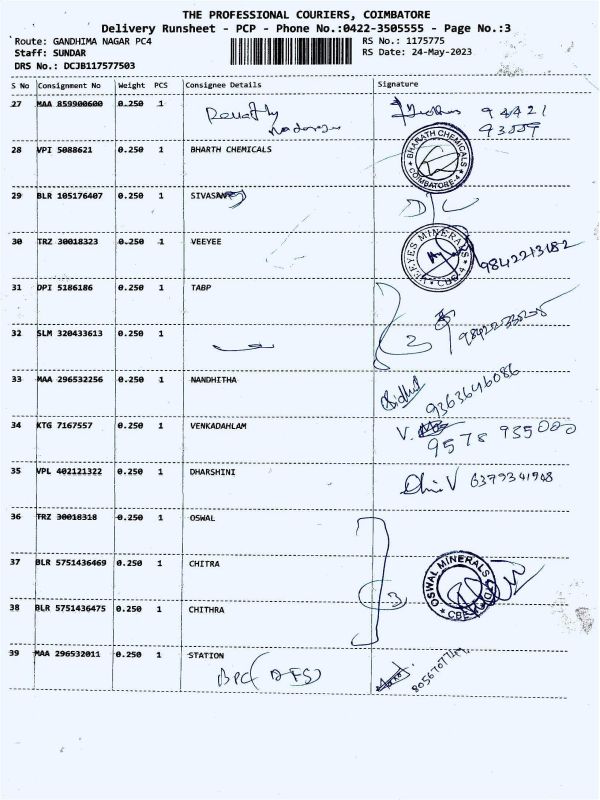 THE PROFESSIONAL COURIERS, COIMBATORE
Delivery Runsheet - PCP - Phone No.:0422-3505555 - Page No.:3
Route: GANDHIMA NAGAR PC4 RS No.: 1175775
Staff: SUNDAR RS Date: 24-May-2023
DRS No.: DCJB117577503
S No Consignment No Weight PCS Consignee Details Signature
27 MAA 859900600 0.250 1 94421
93559
28 VPI 5088621 0.250 1 BHARTH CHEMICALS BHARATH CHEMICALS COIMBATORE-4
29 BLR 105176407 0.250 1
30 TRZ 30018323 0.250 1 VEEYEE MINERALS CBE-4 9842213182
31 DPI 5186186 0.250 1 TABP
32 SLM 320433613 0.250 1 2
33 MAA 296532256 0.250 1 NANDHITHA 9363646086
34 KTG 7167557 0.250 1 VENKADAHLAM V. 9578 935000
35 VPL 402121322 0.250 1 DHARSHINI V 6379341908
36 TRZ 30018318 0.250 1 OSWAL
37 BLR 5751436469 0.250 1 CHITRA OSWAL MINERALS
38 BLR 5751436475 0.250 1 CHITHRA 3
39 MAA 296532011 0.250 1 STATION
BPC (AFS)